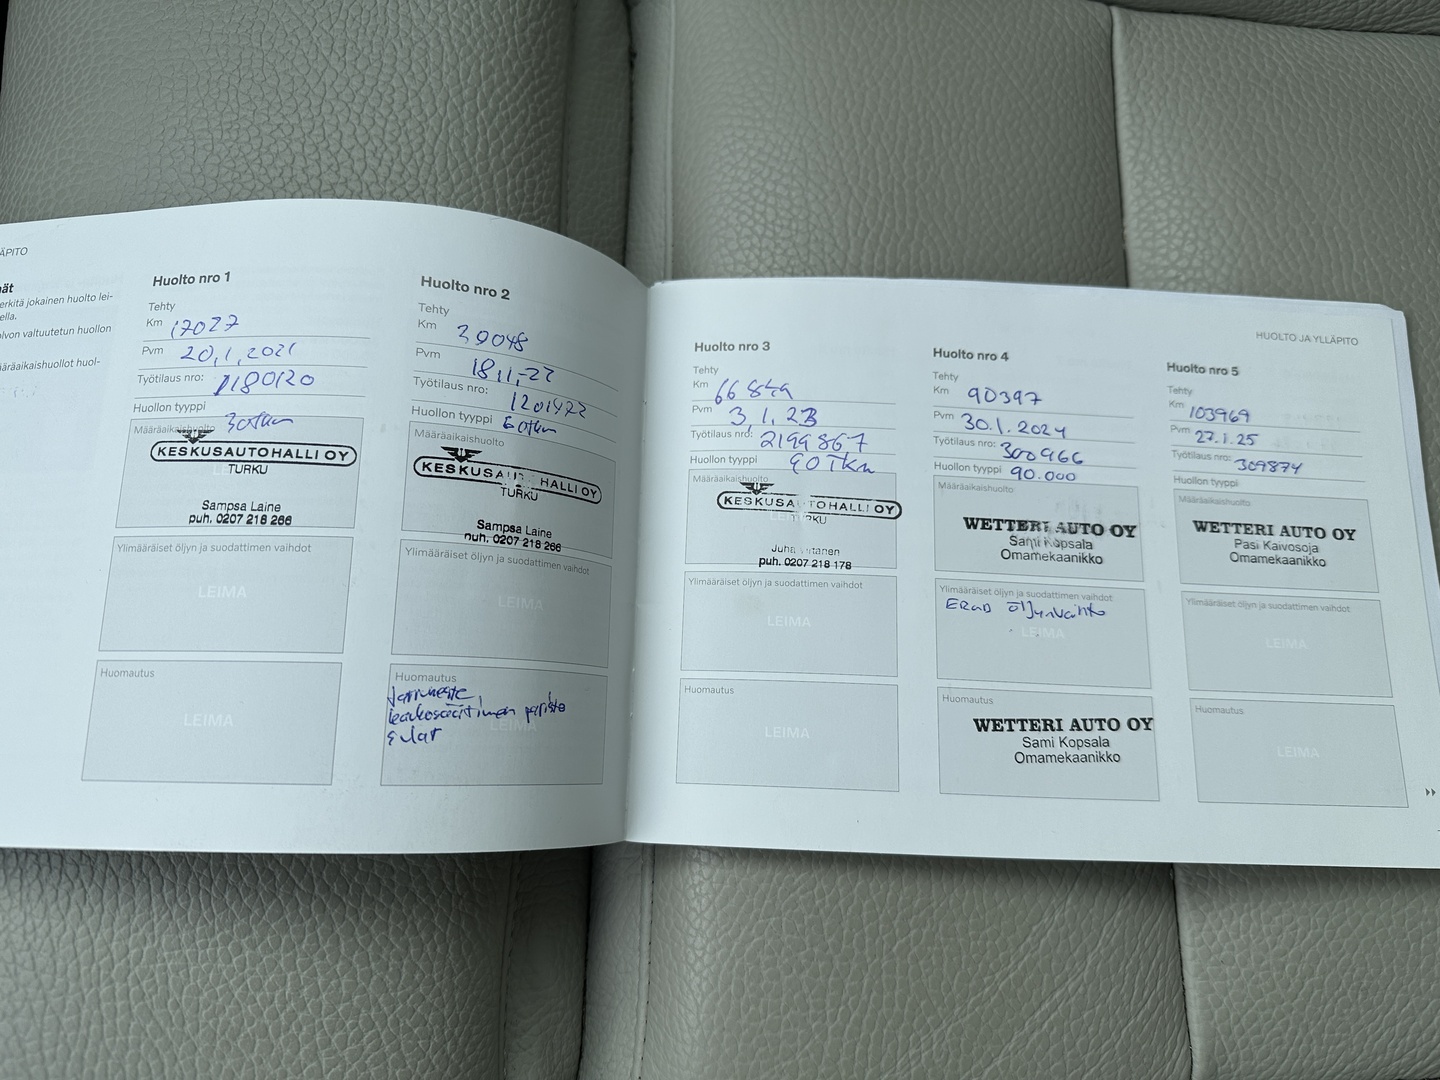 ÄPITO
ät
erkitä jokainen huolto lei-
ella.
olvon valtuutetun huollon
ääräaikaishuollot huol-
Huolto nro 1
Tehty
Km 17027
Pvm 20.1.2021
Työtilaus nro: 1180120
Huollon tyyppi 30tkm
Määräaikaishuolto
KESKUSAUTOHALLI OY
TURKU
Sampsa Laine
puh. 0207 218 266
Ylimääräiset öljyn ja suodattimen vaihdot
LEIMA
Huomautus
LEIMA
Huolto nro 2
Tehty
Km 39048
Pvm 18.1.-22
Työtilaus nro: 1201472
Huollon tyyppi 60tkm
Määräaikaishuolto
KESKUSAUTOHALLI OY
TURKU
Sampsa Laine
puh. 0207 218 266
Ylimääräiset öljyn ja suodattimen vaihdot
LEIMA
Huomautus
Jarruneste,
kaukosäätimen paristo
LEIMA
HUOLTO JA YLLÄPITO
Huolto nro 3
Tehty
Km
Pvm 3.1.23
Työtilaus nro: 2199867
Huollon tyyppi 90Tkm
Määräaikaishuolto
KESKUSAUTOHALLI OY
TURKU
Juha
puh. 0207 218 178
Ylimääräiset öljyn ja suodattimen vaihdot
LEIMA
Huomautus
LEIMA
Huolto nro 4
Tehty
Km 90397
Pvm 30.1.2024
Työtilaus nro: 300966
Huollon tyyppi 90.000
Määräaikaishuolto
WETTERI AUTO OY
Sami Kopsala
Omamekaanikko
Ylimääräiset öljyn ja suodattimen vaihdot
ERAD öljynvaihto
LEIMA
Huomautus
WETTERI AUTO OY
Sami Kopsala
Omamekaanikko
Huolto nro 5
Tehty
Km 103969
Pvm 27.1.25
Työtilaus nro: 309874
Huollon tyyppi
Määräaikaishuolto
WETTERI AUTO OY
Pasi Kaivosoja
Omamekaanikko
Ylimääräiset öljyn ja suodattimen vaihdot
LEIMA
Huomautus
LEIMA